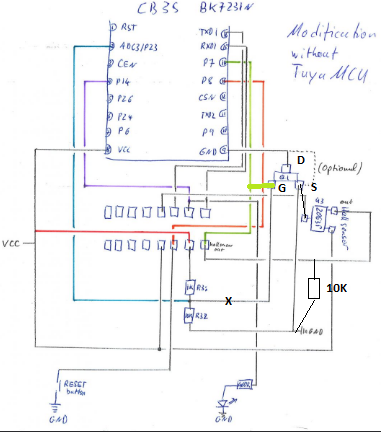 CB3S BK7231N
Modification
without
Tuya MCU
RST
ADC3/P23
CEN
P14
P26
P24
P6
VCC
TXD1
RXD1
P7
P8
CSN
TXD2
P9
GND
D
(optional)
Q1
G
S
out
VCC
R31
X
10K
R32
RESET
button
GND
GND